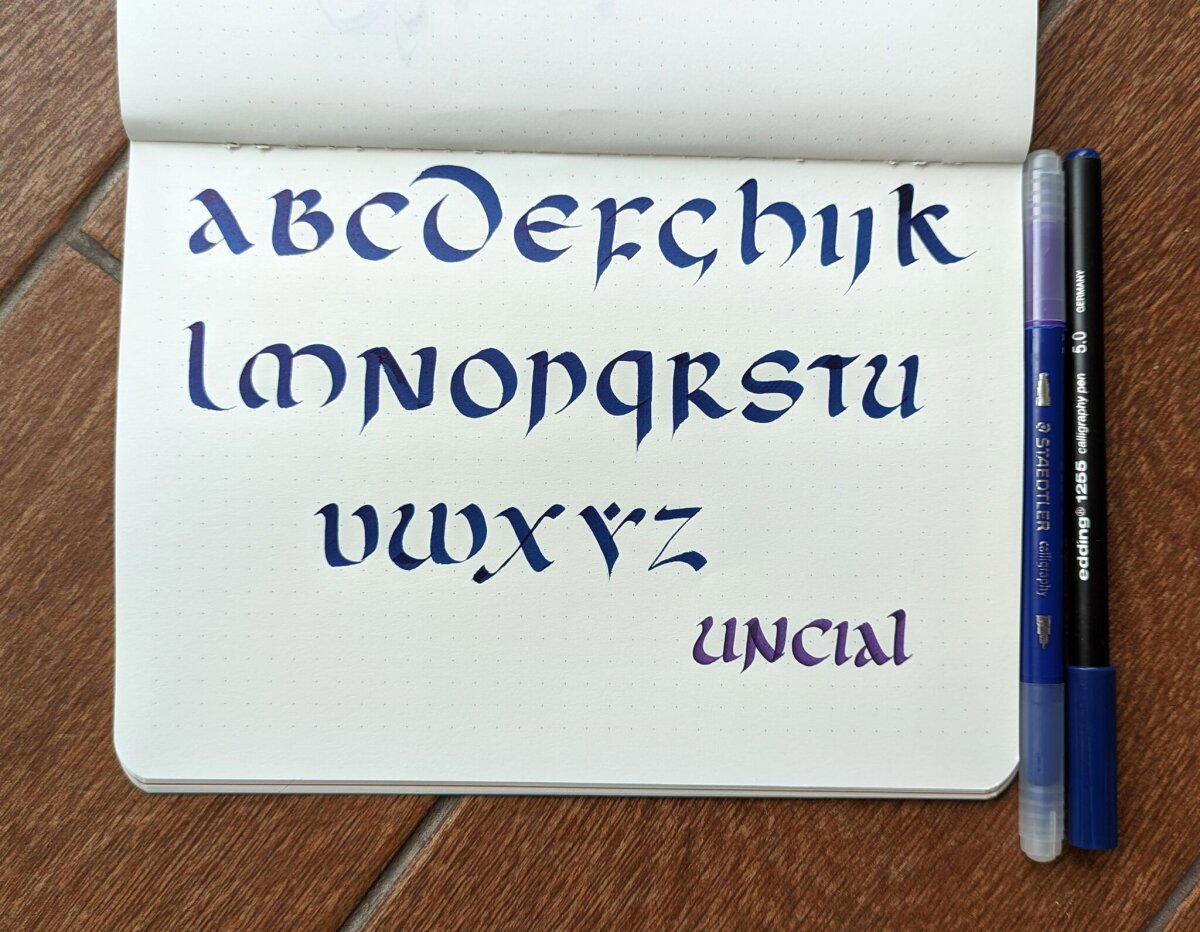 ABCDEFGHIJK
LMNOPQRSTU
VWXYZ
UNCIAL
STAEDTLER calligraphy
edding® 1255 calligraphy pen 5.0 GERMANY